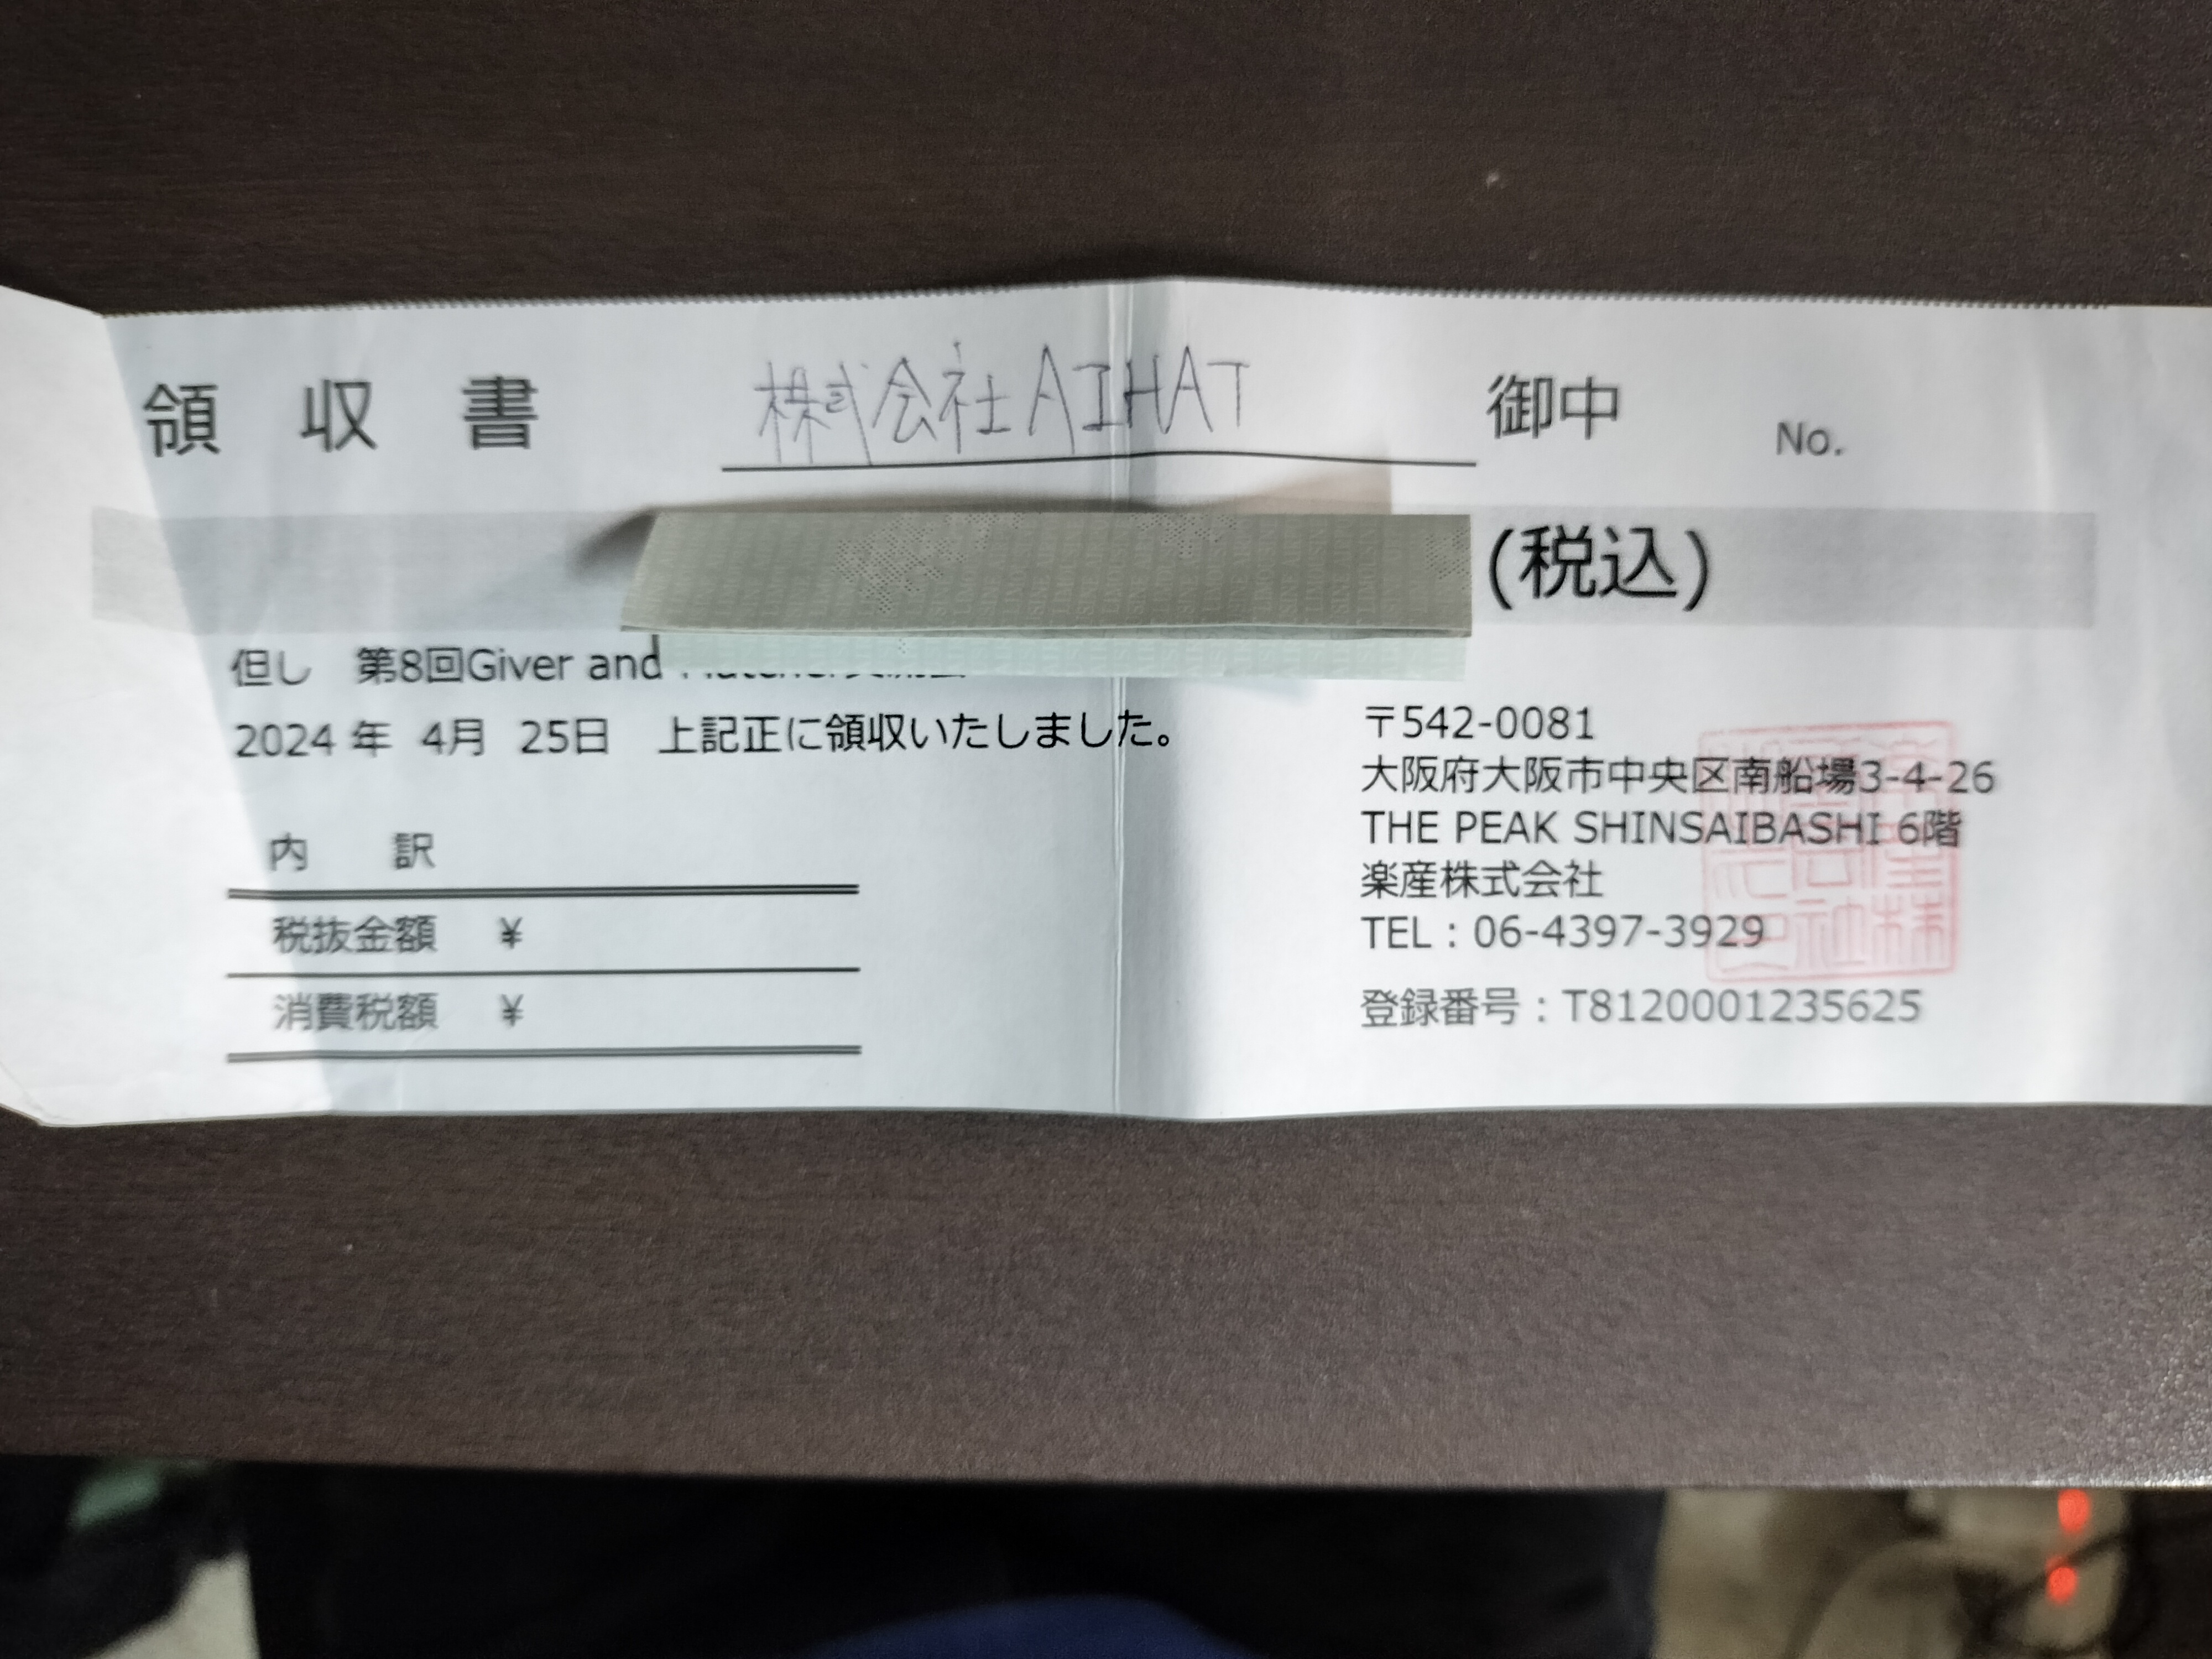 領収書 株式会社AIHAT 御中 No.
(税込)
但し 第8回Giver and
2024年 4月 25日 上記正に領収いたしました。
内訳
税抜金額 ¥
消費税額 ¥
〒542-0081
大阪府大阪市中央区南船場3-4-26
THE PEAK SHINSAIBASHI 6階
楽産株式会社
TEL：06-4397-3929
登録番号：T8120001235625